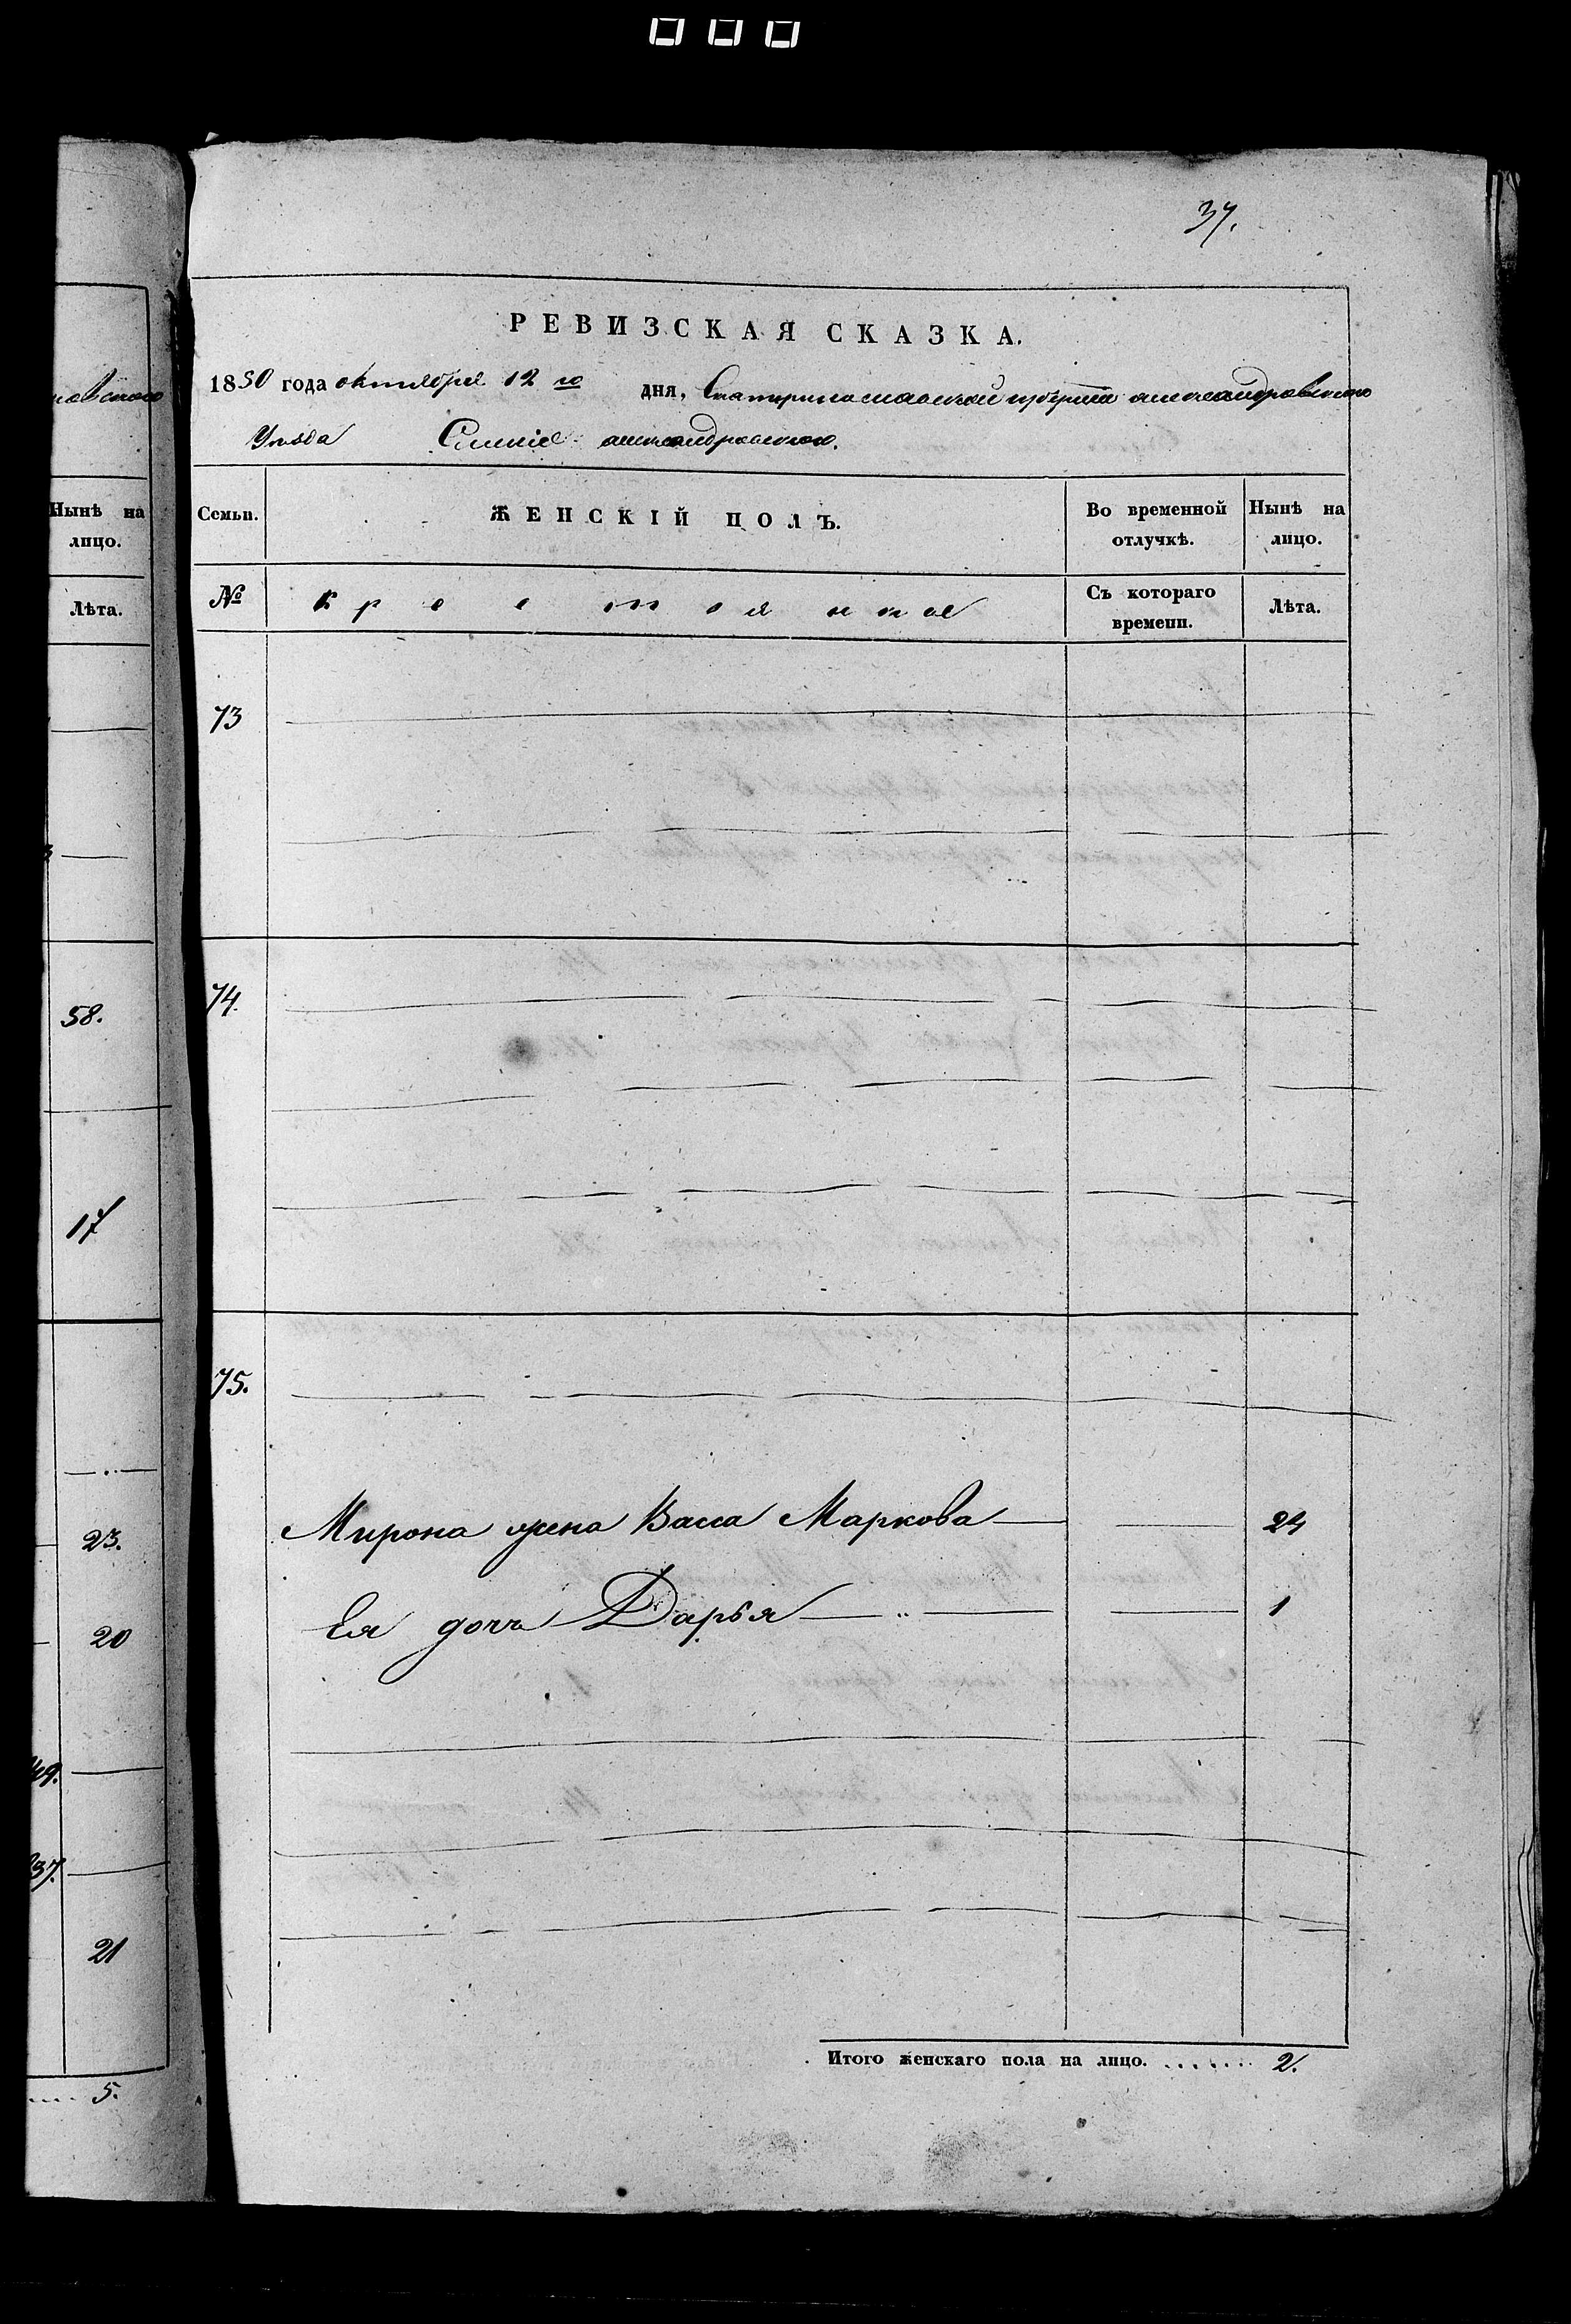 37.
РЕВИЗСКАЯ СКАЗКА.
1850 года октября 12 го дня, Екатеринославской губернии александровского
Уѣзда Селенiе александровского.
Семьи. ЖЕНСКІЙ ПОЛЪ. Во временной отлучкѣ. Нынѣ на лицо.
№ крестьянки Съ котораго времени. Лѣта.
73
74.
75.
Мирона жена Васса Маркова 24
Ея дочь Дарья 1
Итого женскаго пола на лицо. ....... 2.
Нынѣ на
лицо.
Лѣта.
58.
17
23.
20
49.
37.
21
.... 5.